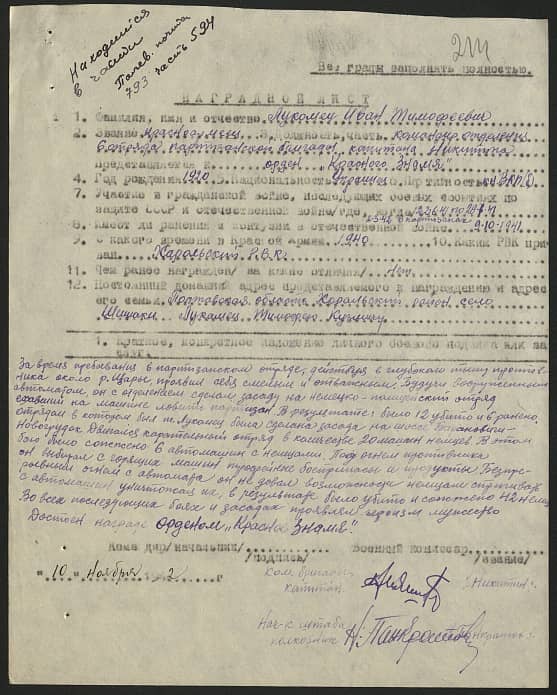 Находится
в части
Полев. почта
793 часть 594
211
Все графы заполнять полностью.
НАГРАДНОЙ ЛИСТ
1. Фамилия, имя и отчество Лукомец Иван Тимофеевич
2. Звание красноармеец 3. Должность, часть командир отделения
отряда партизанской бригады капитана Никитина
представляется к орден "Красного Знамя"
4. Год рождения 1910 5. Национальность Украинец 6. Партийность ВКП(б)
7. Участие в гражданской войне, последующих боевых действиях по
защите СССР и отечественной войне/где, когда/
8. Имеет ли ранения и контузии в отечественной войне 9-10-1941
9. С какого времени в Красной Армии 1940 10. Каким РВК при
зван Хорольский Р.В.К.
11. Чем ранее награжден/ за какие отличия/ Нет
12. Постоянный домашний адрес представляемого к награждению и адрес
его семьи Полтавская область Хорольский район село
Шишаки Лукомец Тимофей
1. Краткое, конкретное изложение личного боевого подвига или за
слуг.
За время пребывания в партизанском отряде, действуя в глубоком тылу против
ника около р. Щары, проявил себя смелым и отважным. Будучи вооруженным
автоматом, он с отделением сделал засаду на немецко-полицейский отряд
ехавший на машине ловить партизан. В результате: было 12 убито и 8 ранено.
отрядом в котором был т. Лукомец была сделана засада на шоссе Барановичи-
Новогрудок Двигался карательный отряд в количестве 20 машин немцев. В этом
бою было сожжено 6 автомашин с немцами. Под огнем противника
он выбирал с горящих машин трофейные боеприпасы и продукты. Беспре-
рывным огнем с автомата он не давал возможности немцам спрыгивать
с автомашин уничтожая их, в результате было убито и сожжено немцев
Во всех последующих боях и засадах проявлял героизм мужество
Достоен награде орденом "Красное Знамя".
Командир/начальник/ Военный комиссар
/подпись/ /звание/
"10" Ноября 1942 г
Ком. бригады
капитан Никитин
Нач-к штаба
полковник Панкратов